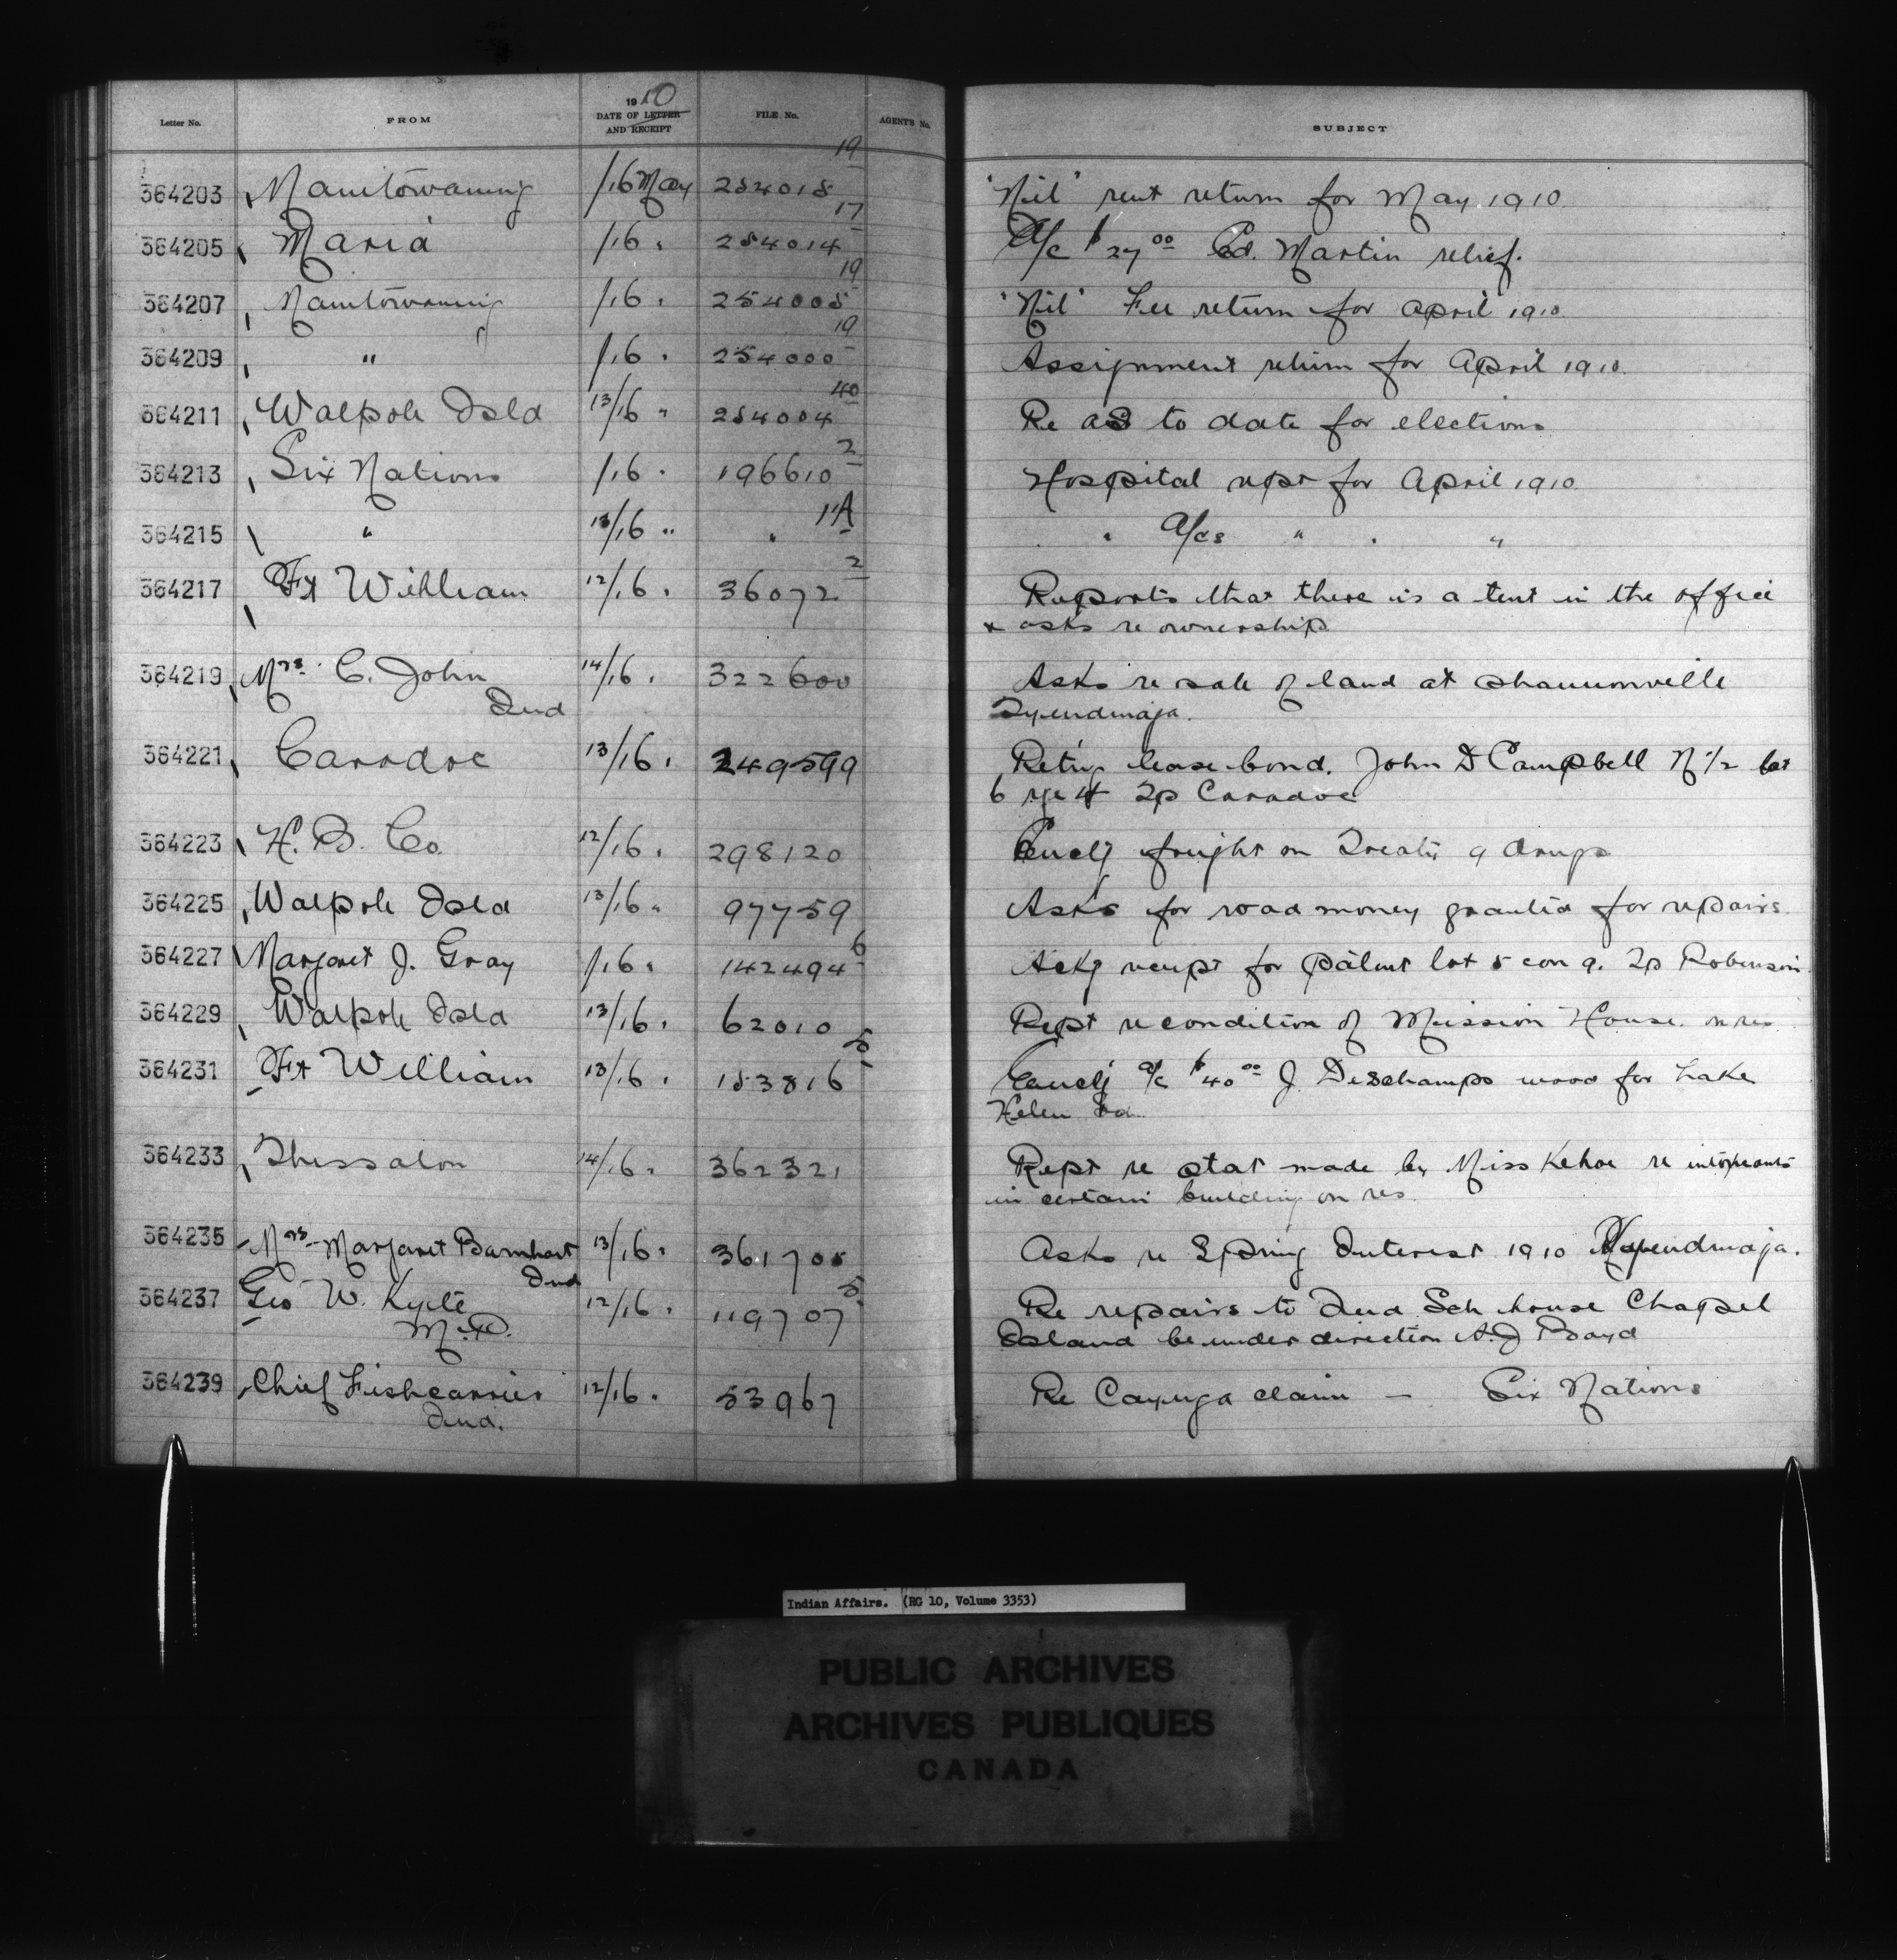 Letter No. FROM 1910 DATE OF LETTER AND RECEIPT FILE No. AGENT'S No. SUBJECT
364203 Manitowaning /16 May 254018-19 "Nil" rent return for May 1910
364205 Maria /16 " 254014-17 A/c $27.00 Ed. Martin relief.
364207 Manitowaning /16 " 254005-19 "Nil" Fee return for April 1910
364209 " /16 " 254000-19 Assignment return for April 1910.
364211 Walpole Isld 13/16 " 254004-40 Re as to date for elections
364213 Six Nations /16 " 196610-2 Hospital rept for April 1910.
364215 " 13/16 " " 11A " A/cs " " "
364217 Ft William 12/16 " 36072-2 Reports that there is a tent in the office
& asks re ownership.
364219 Mrs. C. John 14/16 " 322600 Asks re sale of land at Shannonville
Ind Tyendinaga.
364221 Caradoc 13/16 " 249599 Ret'g lease bond. John D Campbell N 1/2 lot
6 rge 4 Tp Caradoc
364223 H. B. Co. 12/16 " 298120 Enclg freight on Treaty 9 drugs
364225 Walpole Isld 13/16 " 97759 Asks for road money granted for repairs.
364227 Margaret J. Gray /16 " 142494-6 Ackg receipt for patent lot 5 con 9. Tp Robinson.
364229 Walpole Isld 13/16 " 62010 Rept re condition of Mission House on res
364231 Ft William 13/16 " 153816-5 Enclg a/c $40.00 J. Deschamps wood for Lake
Helen
364233 Thessalon 14/16 " 362321 Rept re stat made by Miss Kehoe re intoxicants
in certain building on res
364235 Mrs. Margaret Barnhart 13/16 " 361705 Asks re Spring Interest 1910 Tyendinaga.
Ind
364237 Geo W. Kyte 12/16 " 119707-5 Re repairs to Ind Sch house Chapel
M.P. Island be under direction A.J Boyd
364239 Chief Fishcarrier 12/16 " 53967 Re Cayuga claim — Six Nations
Ind.
Indian Affairs. (RG 10, Volume 3353)
PUBLIC ARCHIVES
ARCHIVES PUBLIQUES
CANADA